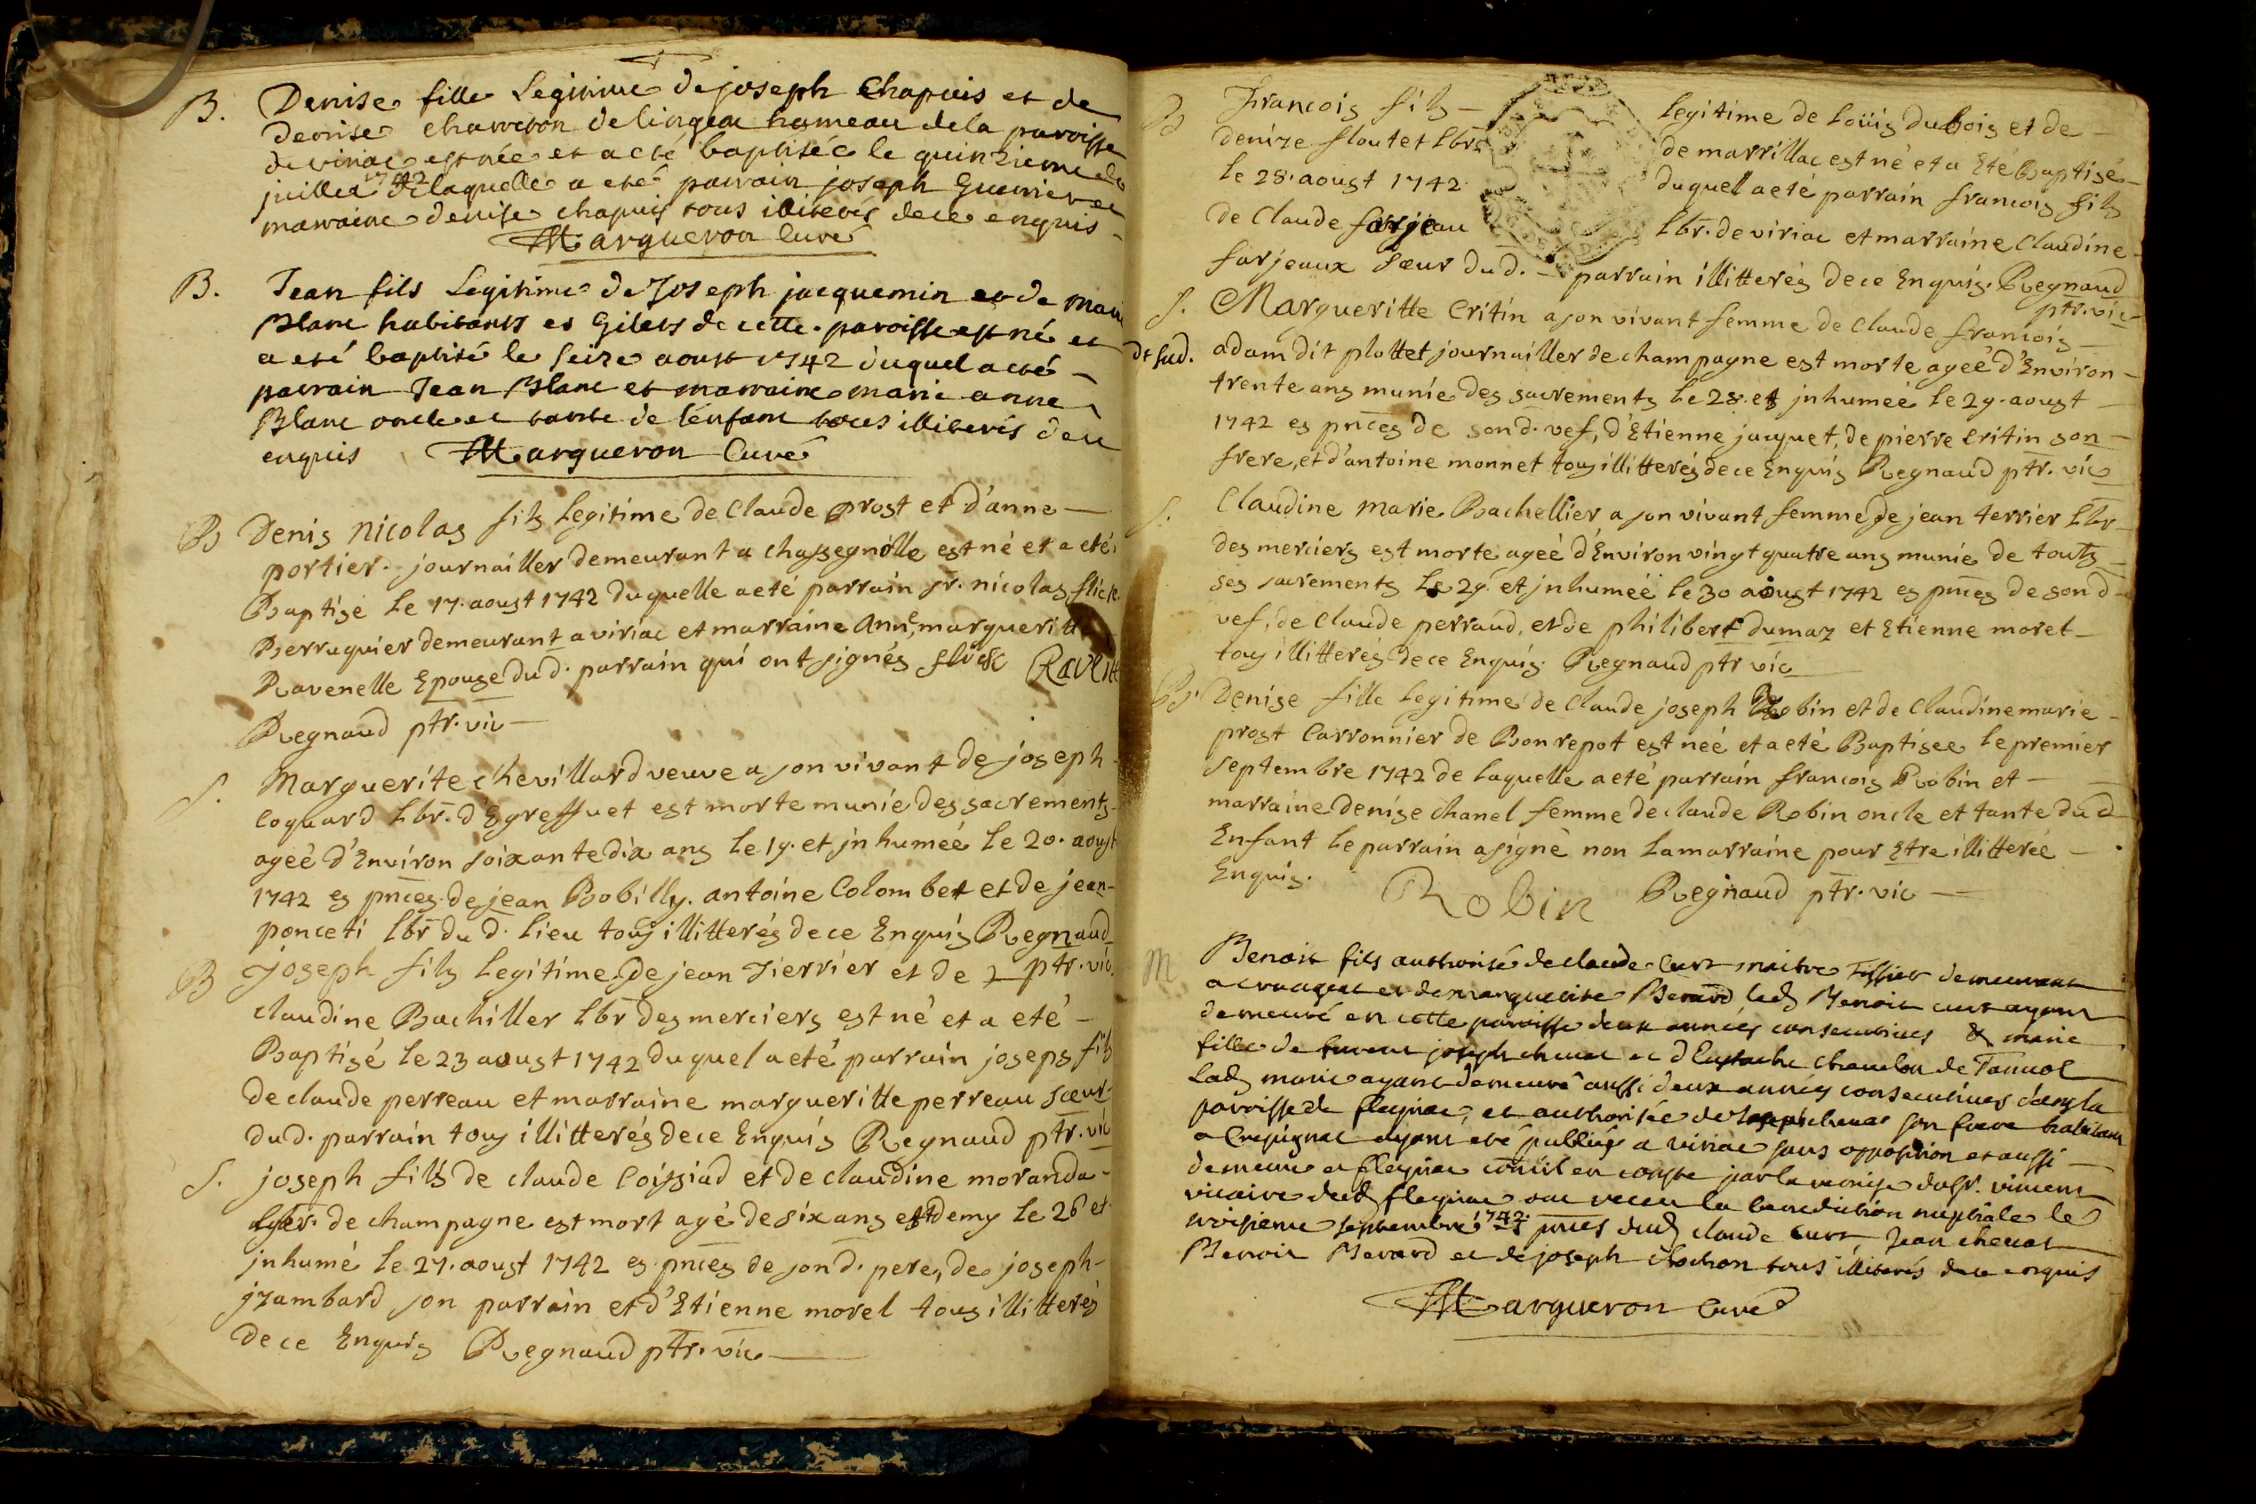 B. Denise fille Legitime de joseph Chapuis et de
denise charreton de lingeac hameau de la paroisse
de viriac est née et a eté baptiséé le quinzieme de
juillet 1742 de laquelle a eté parrain joseph Guerrier et
marraine denise chapuis tous illiterés de ce enquis
Margueron Curé
B. Jean fils Legitime de Joseph jacquemin et de marie
Blanc habitants es Gilets de cette paroisse est né et
a eté baptisé le seize aoust 1742 duquel a eté
parrain Jean Blanc et marraine marie anne
Blanc oncle et tante de lénfant tous illiterés de ce
enquis Margueron Curé
B Denis nicolas fils legitime de Claude prost et d'anne
portier journailler demeurant a chassegnolle est né et a eté
Baptisé le 17. aoust 1742 duquelle a eté parrain sr. nicolas flick
Perruquier demeurant a viriac et marraine Anne margueritte
Ravenelle Epouse du d. parrain qui ont signés flick
Regnaud ptr. vic
S. Marguerite chevillard veuve a son vivant de joseph
Coquard Lbr. d'Egreffuet est morte munie des sacrements
ageé d'Environ soixante dix ans le 19. et jnhumée le 20. aoust
1742 es pnces de jean Bobilly. antoine Colombet et de jean
ponceti lbr du d. lieu tous illitterés de ce Enquis Regnaud
ptr. vic.
B joseph fils legitime de jean Tierrier et de
claudine Bachiller lbr des merciers est né et a eté
Baptisé le 23 aoust 1742 duquel a eté parrain joseps fils
de claude perreau et marraine margueritte perreau sœur
du d. parrain tous illitterés de ce Enquis Regnaud ptr. vic
S. joseph fils de claude Coissiad et de claudine moranda
lbr. de champagne est mort agé de six ans et demy le 26 et
jnhumé le 27. aoust 1742 es pnces de son d. pere, de joseph
jzambard son parrain et d'Etienne morel tous illitterés
de ce Enquis Regnaud ptr. vic
B Francois fils legitime de Loüis dubois et de
denize floutet lbrs de marrillac est né et a Eté baptisé
le 28. aoust 1742 duquel a eté parrain francois fils
de Claude farjeau lbr. de viriac et marraine Claudine
farjeaux sœur du d. parrain illitterés de ce Enquis. Regnaud
ptr. vic
S. Margueritte Critin a son vivant femme de Claude francois
adam dit plottet journailler de champagne est morte ageé d'Environ
trente ans munie des sacrements le 28. et jnhumée le 29. aoust
1742 es pnces de son d. vef, d'Etienne jacquet, de pierre Critin son
frere, et d'antoine monnet tous illitterés de ce Enquis Regnaud ptr. vic
S. Claudine Marie Bachellier a son vivant femme de jean terrier lbr
des merciers est morte ageé d'Environ vingt quatre ans munie de touts
ses sacrements le 29. et jnhumée le 30 aoust 1742 es pnces de son d
vef, de Claude perraud, et de philibert dumaz et Etienne moret
tous illitterés de ce Enquis. Regnaud ptr vic
B. Denise fille legitime de Claude joseph Robin et de Claudine marie
prost Carronnier de Bonrepot est neé et a eté Baptisee le premier
septembre 1742 de laquelle a eté parrain francois Robin et
marraine denise chanel femme de claude Robin oncle et tante du d
Enfant le parrain a signé non la marraine pour Etre illitterée
Enquis. Robin Regnaud ptr. vic
M Benoit fils authorisé de claude Curt maitre Tissier demeurant
a et de marguerite Berard led Benoit curt ayant
demeuré en cette paroisse deux années consecutives & marie
fille de joseph chevat et d'Eustache de
Lad marie ayant demeuré aussi deux années consecutives dans la
paroisse de fleyriac, et authorisée de Joseph chevat son frere habitant
a Crepignat ayant eté publiés a viriac sans opposition et aussi
de meme a fleyriac comme il en conste par la remise du sr. vincent
vicaire dud fleyriac ont receu la benediction nuptiale le
troisieme septembre 1742 pnces dud claude curt Jean chevat
Benoit Berard et de joseph tous illiterés de ce enquis
Margueron Curé